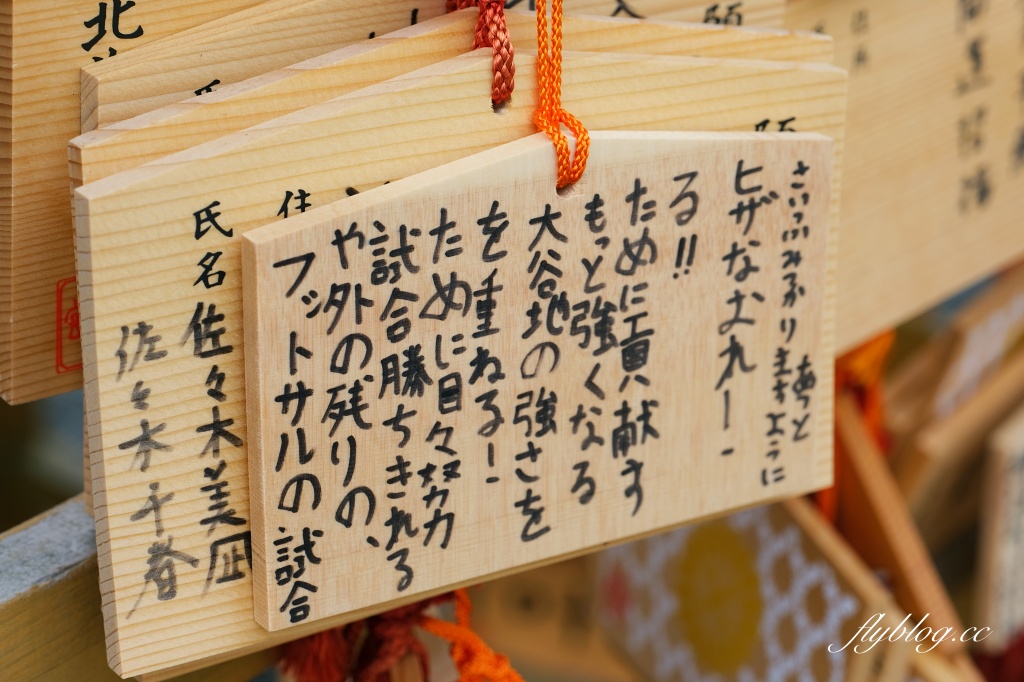 フットサルの試合
や外の残りの、
試合勝ちきれる
ために日々努力
を重ねるー!
大谷地の強さを
もっと強くなる
ために貢献す
る!!
ヒザなおれー!
さいふ ますように
住
氏名 佐々木美凪
佐々木千春
氏
願
北
flyblog.cc